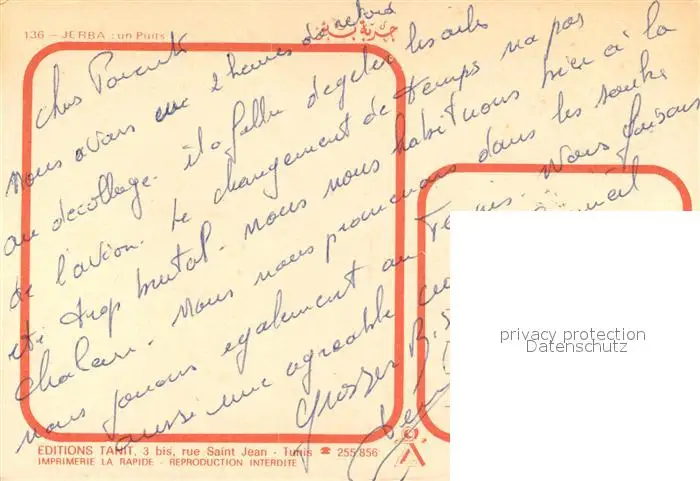 136 - JERBA : un Puits
جربة بئر
Chers Parents
Nous avons eu 2 heures de retard
au décollage. il a fallu dégeler les ailes
de l'avion. Le changement de temps n'a pas
été trop brutal. Nous nous habituons bien à la
chaleur. Nous nous promenons dans les souks
nous jouons également au Tennis. Nous faisons
aussi une agréable
Grosses B
EDITIONS TANIT, 3 bis, rue Saint Jean - Tunis ☎ 255.856
IMPRIMERIE LA RAPIDE - REPRODUCTION INTERDITE
privacy protection
Datenschutz